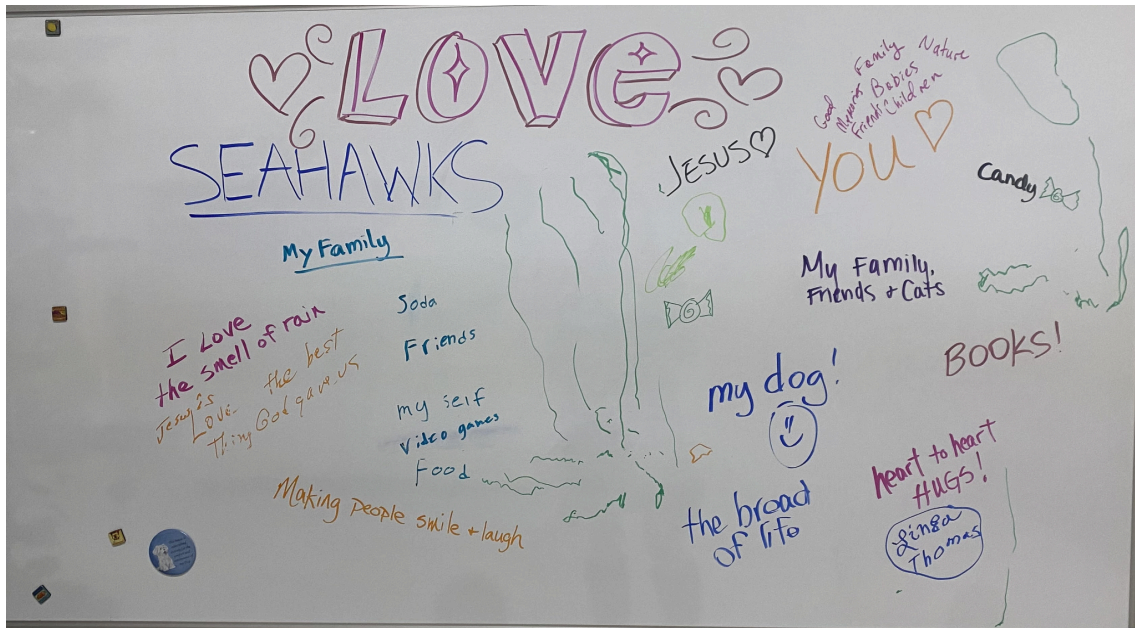 LOVE
SEAHAWKS
My Family
I Love
the smell of rain
Jesus is
Love.
the best
Thing God gave us
Soda
Friends
my self
video games
Food
Making people smile + laugh
JESUS
Family
Nature
Good
Memories Babies
Friends Children
YOU
Candy
My Family,
Friends + Cats
BOOKS!
my dog!
the broad
of life
heart to heart
HUGS!
Linda
Thomas